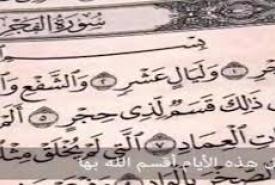 سُورَةُ الْفَجْرِ
بِسْمِ
١ وَلَيَالٍ عَشْرٍ ٢ وَالشَّفْعِ وَالْ
ذَٰلِكَ قَسَمٌ لِّذِي حِجْرٍ ٥ أَلَمْ
تِ الْعِمَادِ ٧ الَّتِي لَمْ يُخْلَقْ مِثْلُ
هذه الأيام أقسم الله بها
الصَّخْرَ بِالْوَادِ